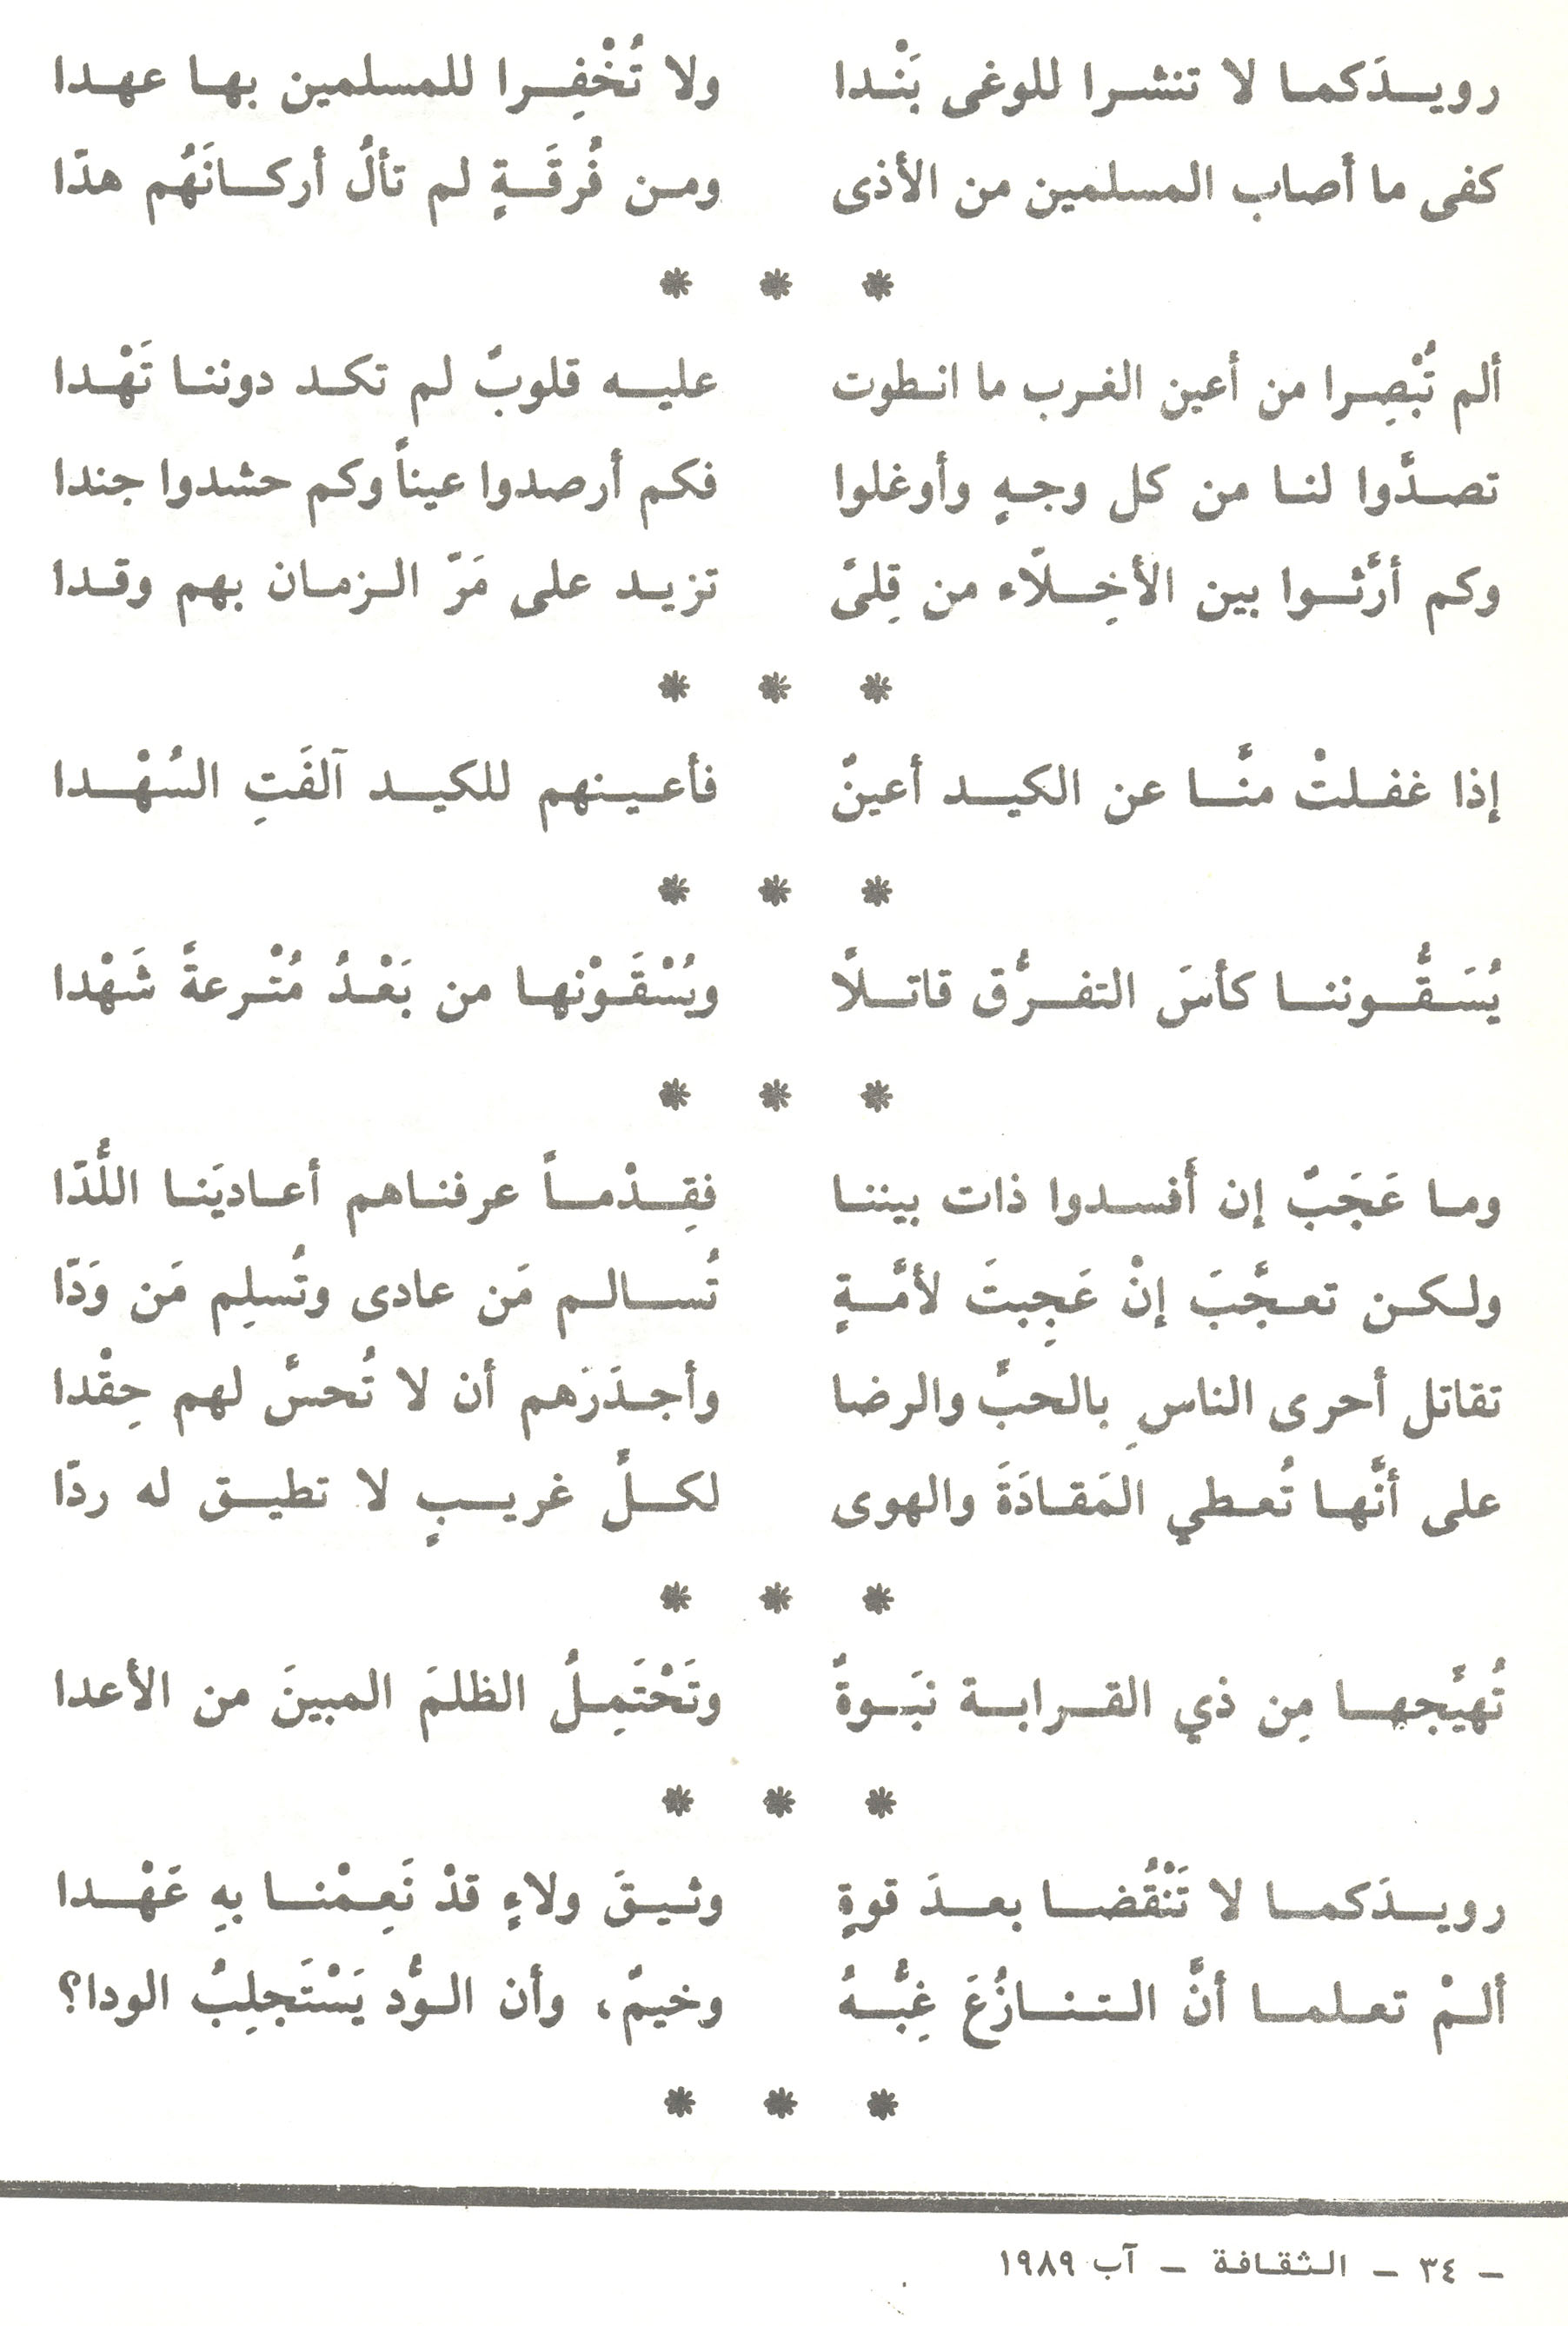 رويـدَكما لا تنشرا للوغى بَنْدا ولا تُخْفِرا للمسلمين بها عهدا
كفى ما أصاب المسلمين من الأذى ومن فُرقَةٍ لم تألُ أركانَهُم هدّا
* * *
ألم تُبْصِرا من أعين الغرب ما انطوت عليه قلوبٌ لم تكد دوننا تَهْدا
تصدَّوا لنا من كل وجهٍ وأوغلوا فكم أرصدوا عيناً وكم حشدوا جندا
وكم أرَّثوا بين الأخِلاّء من قِلىً تزيد على مَرّ الزمان بهم وقدا
* * *
إذا غفلتْ منَّا عن الكيد أعينٌ فأعينهم للكيد آلفَتِ السُهْدا
* * *
يُسَقُّوننا كأسَ التفرُّق قاتلاً ويُسْقَوْنها من بَعْدُ مُتْرعةً شَهْدا
* * *
وما عَجَبٌ إن أَفسدوا ذات بيننا فقِدْماً عرفناهم أعاديَنا اللُّدّا
ولكن تعجَّبَ إنْ عَجِبتَ لأمَّةٍ تُسالم مَن عادى وتُسلِم مَن وَدّا
تقاتل أحرى الناسِ بالحبِّ والرضا وأجدَرَهم أن لا تُحسَّ لهم حِقْدا
على أنَّها تُعطي المَقادَةَ والهوى لكلِّ غريبٍ لا تطيق له ردّا
* * *
تُهيِّجها مِن ذي القرابة نبَوةٌ وتَحْتَمِلُ الظلمَ المبينَ من الأعدا
* * *
رويـدَكما لا تَنْقُضا بعدَ قوةٍ وثيقَ ولاءٍ قدْ نَعِمْنا بهِ عَهْدا
ألمْ تعلما أنَّ التنازُعَ غِبُّهُ وخيمٌ، وأن الوُّد يَسْتَجلِبُ الودا؟
* * *
– ٣٤ – الثقافة – آب ١٩٨٩